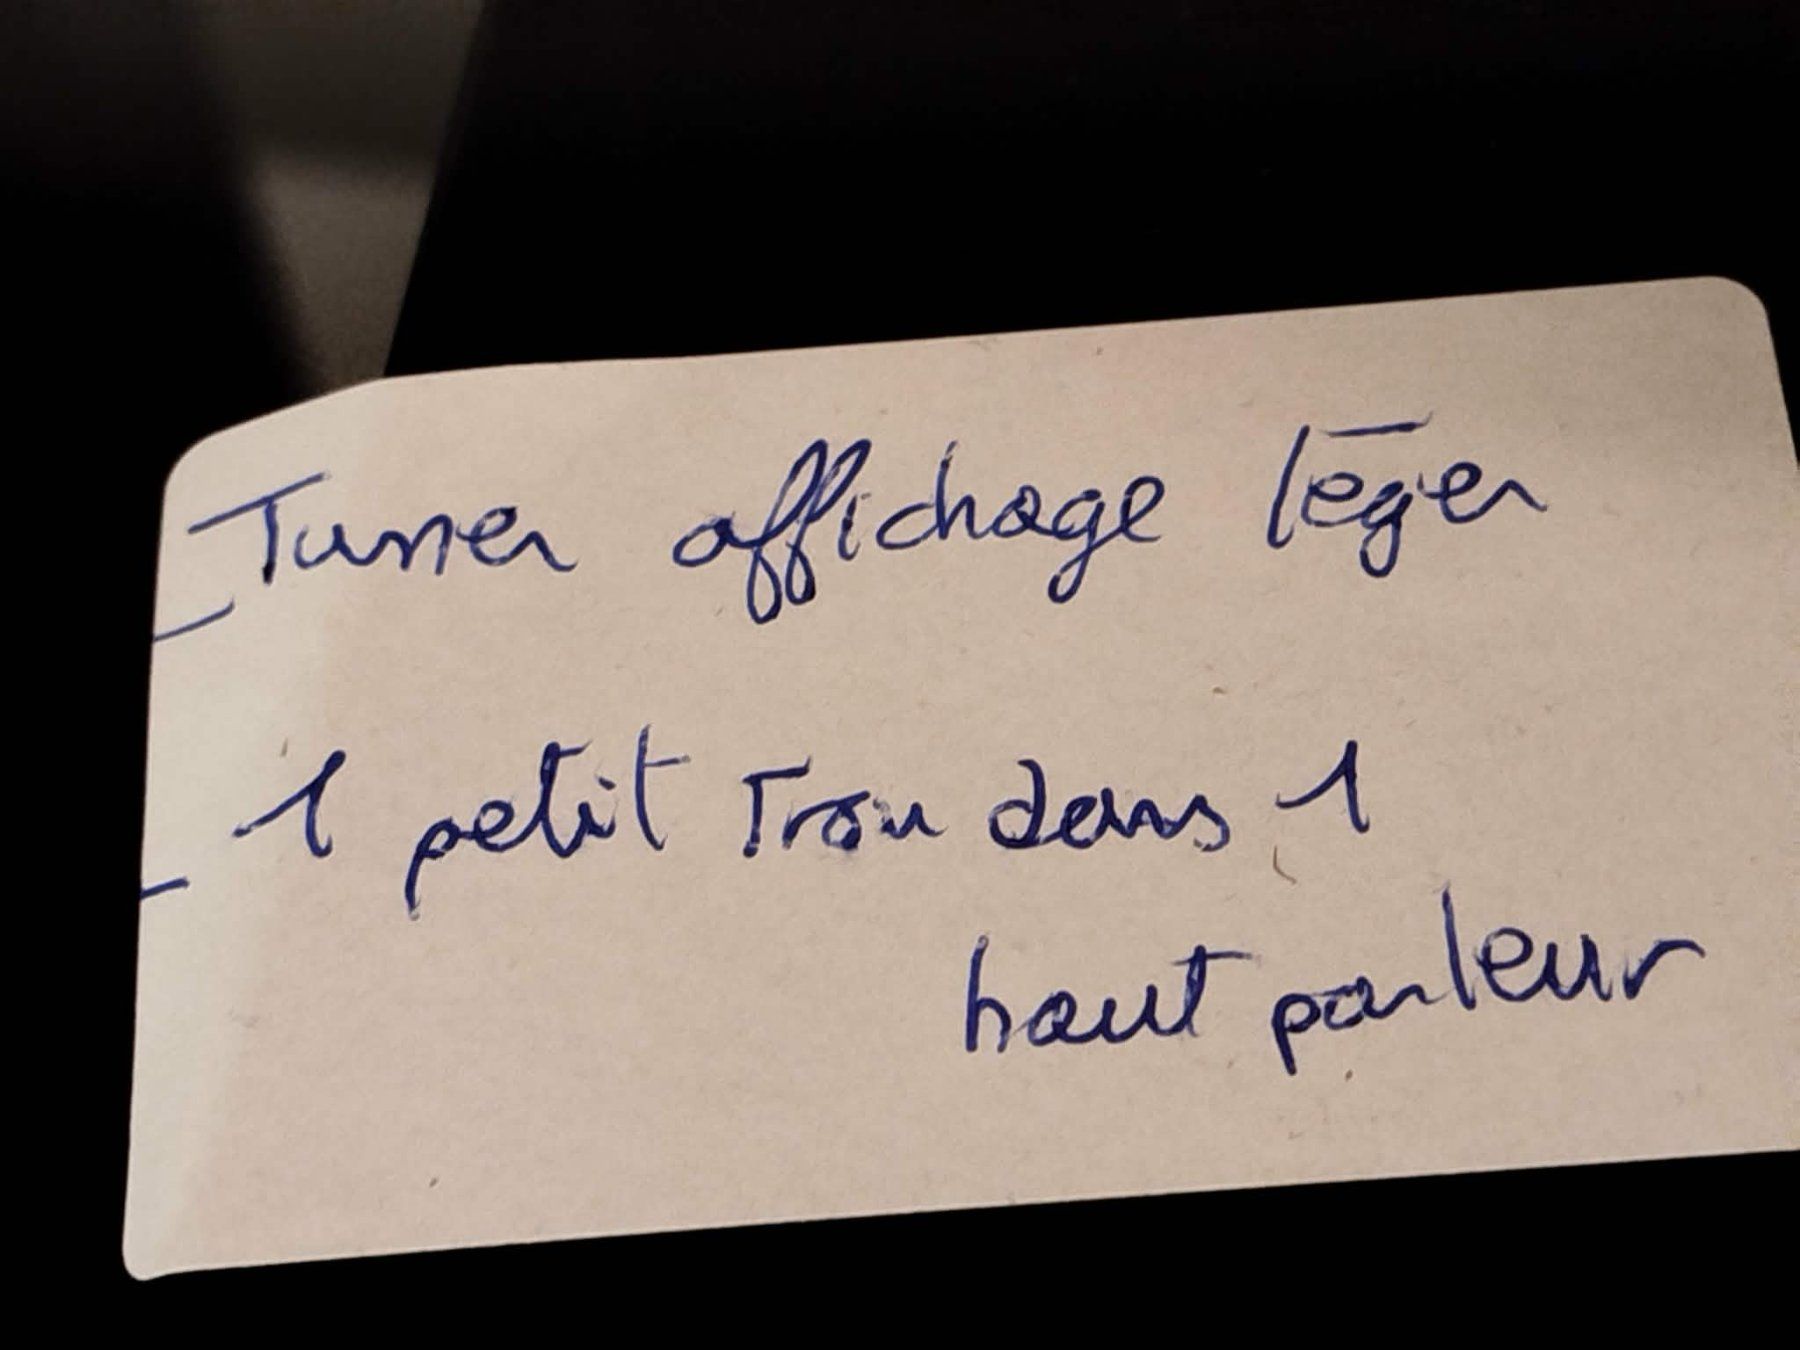 Tuner affichage léger
1 petit Trou dans 1
haut parleur